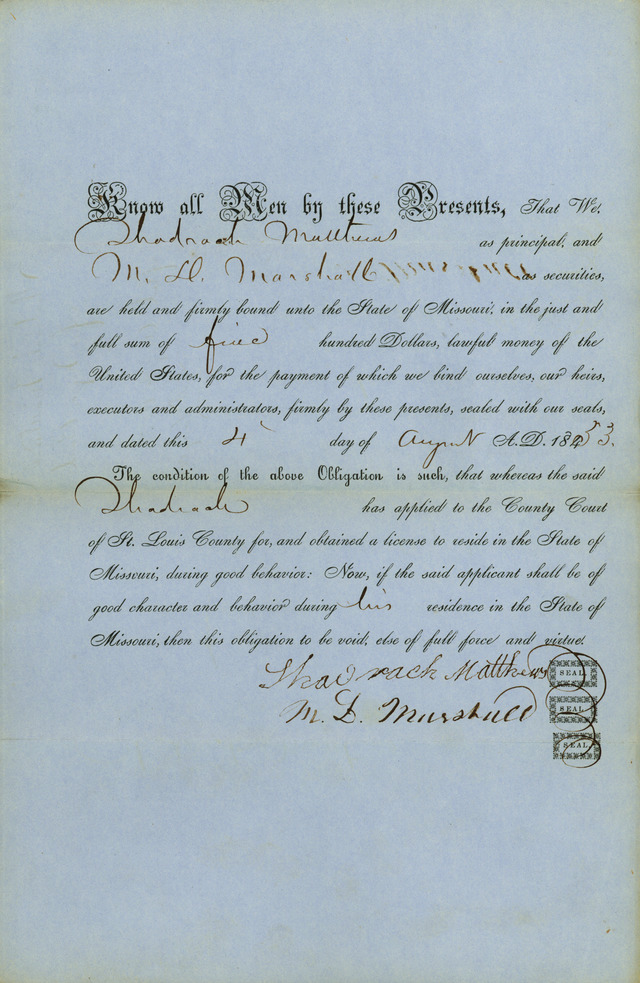 Know all Men by these Presents, That We,
Shadrach Matthews as principal, and
M. D. Marshall as securities,
are held and firmly bound unto the State of Missouri, in the just and
full sum of five hundred Dollars, lawful money of the
United States, for the payment of which we bind ourselves, our heirs,
executors and administrators, firmly by these presents, sealed with our seals,
and dated this 4 day of August A. D. 1853.
The condition of the above Obligation is such, that whereas the said
Shadrach has applied to the County Court
of St. Louis County for, and obtained a license to reside in the State of
Missouri, during good behavior: Now, if the said applicant shall be of
good character and behavior during his residence in the State of
Missouri, then this obligation to be void, else of full force and virtue.
Shadrack Matthews SEAL
M. D. Marshall SEAL
SEAL